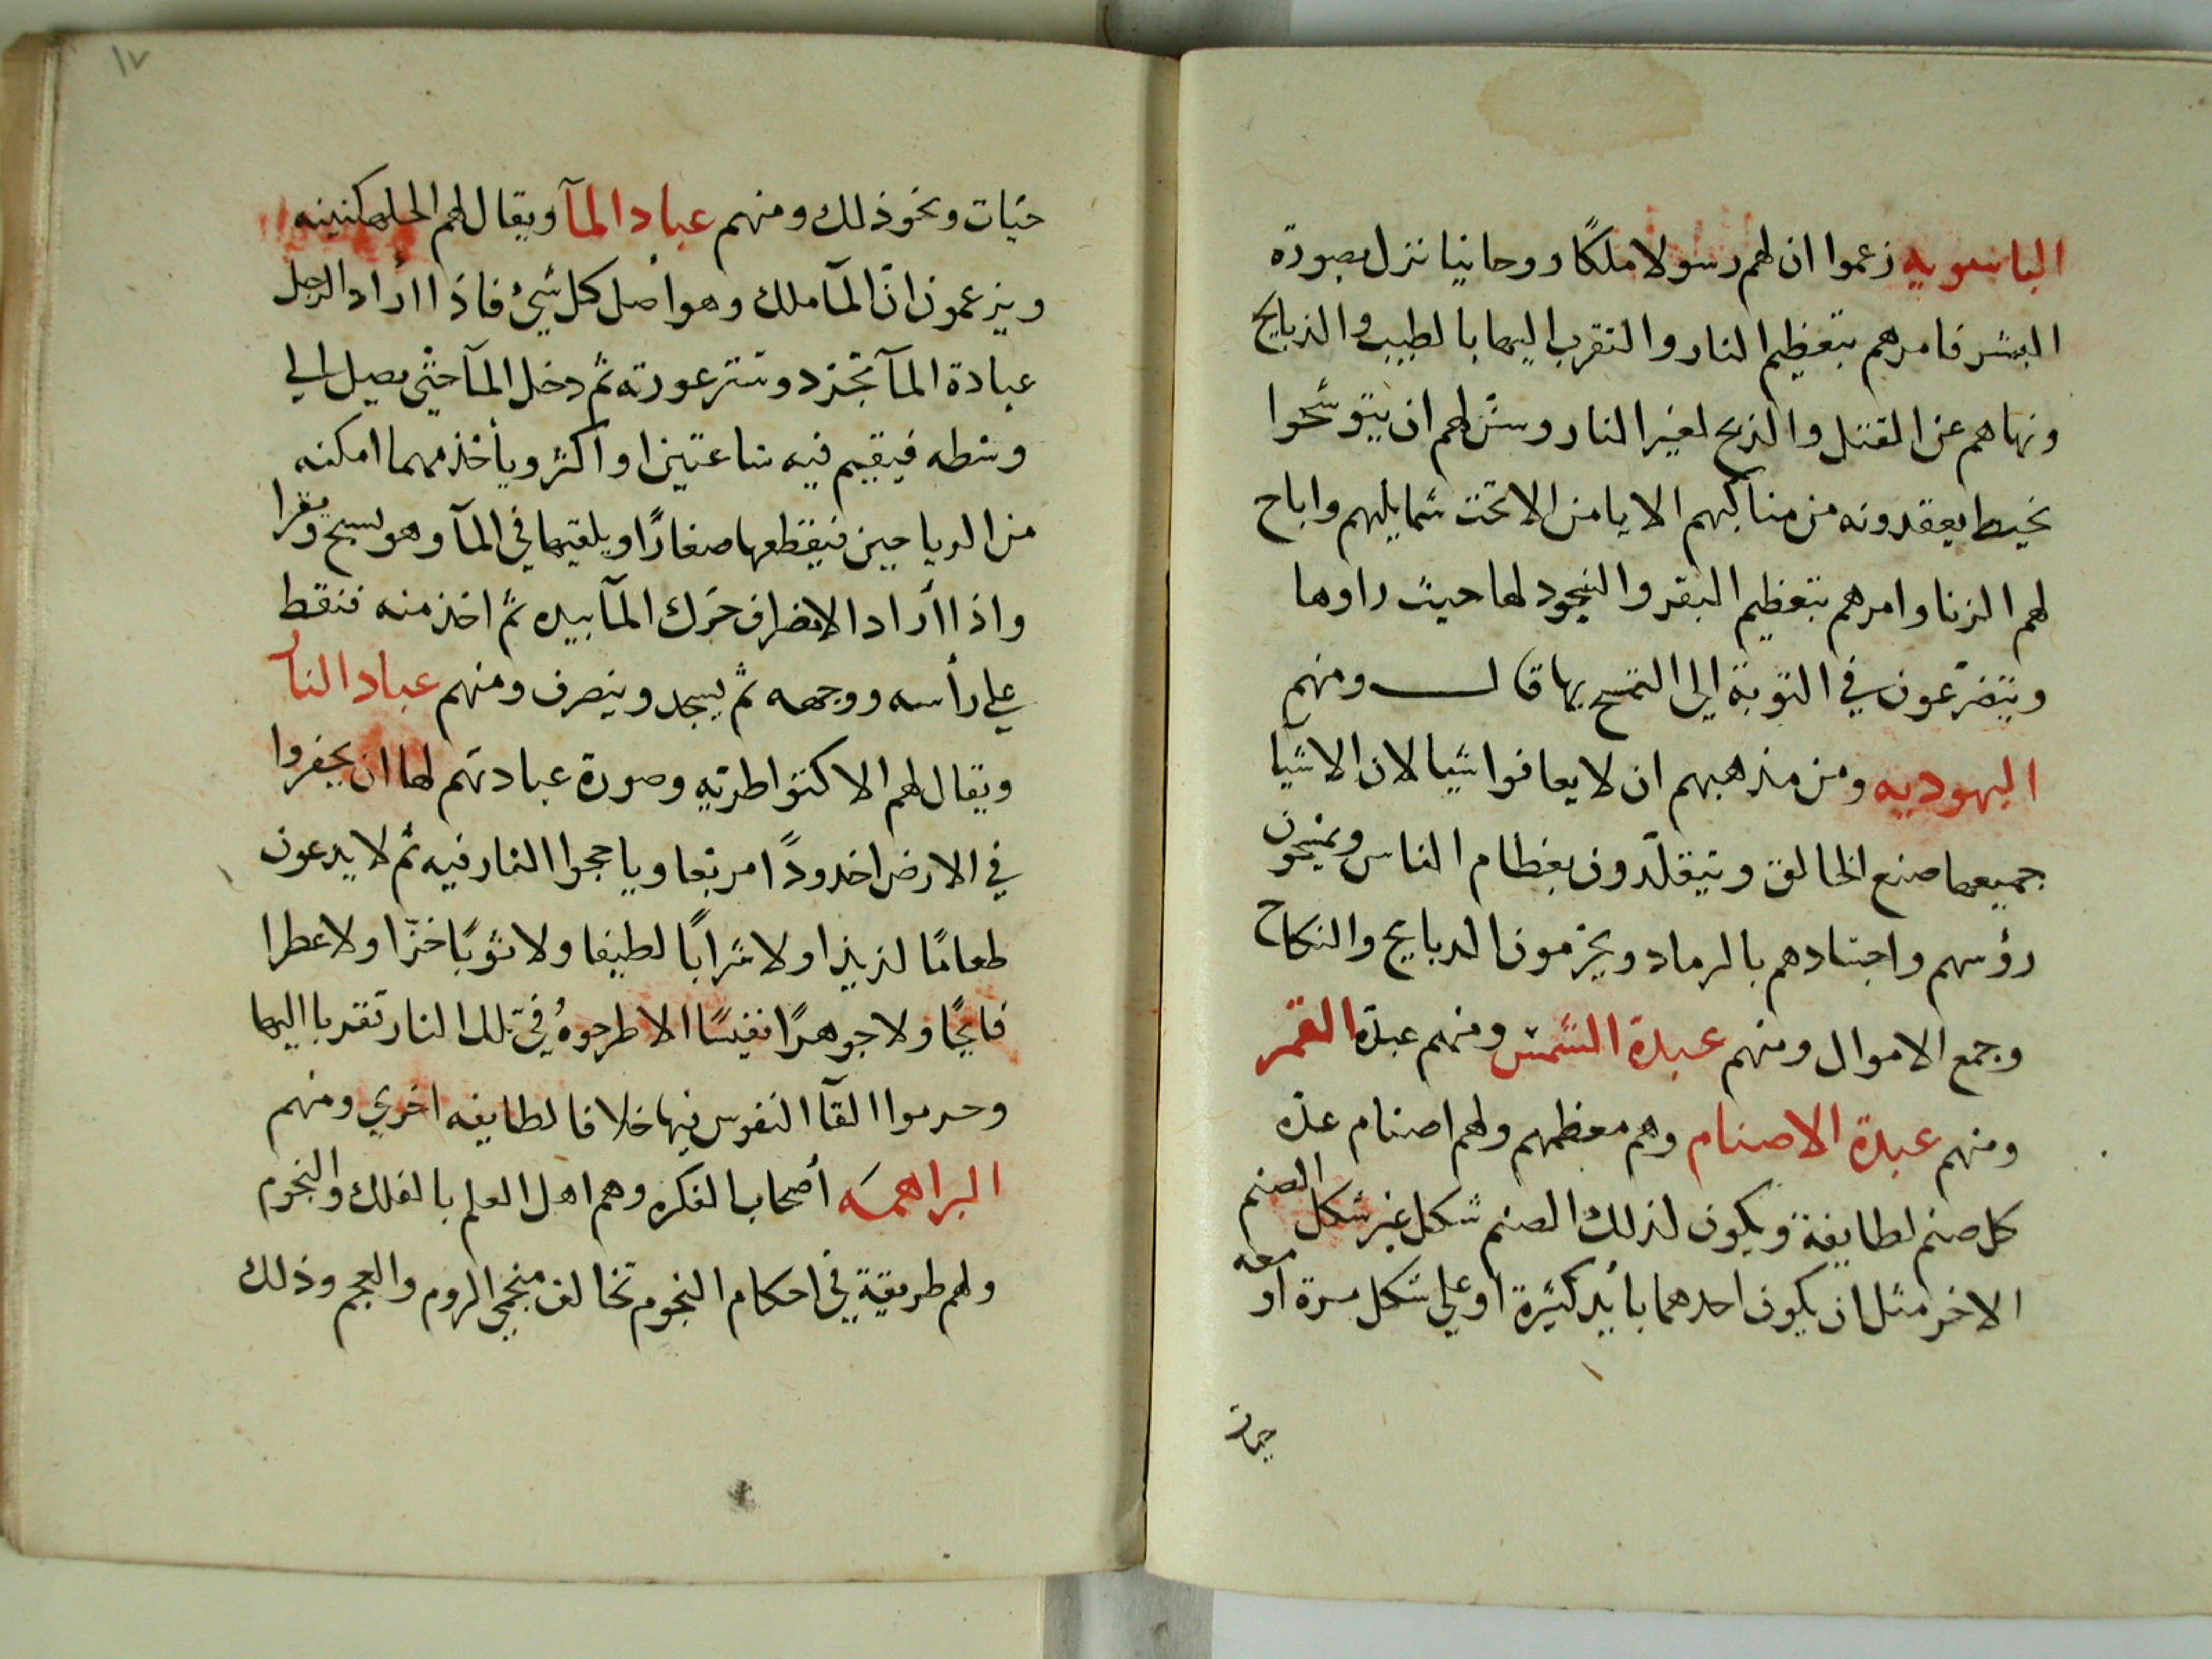 الباسويه زعموا ان لهم رسولا ملكًا روحانيا نزل بصورة
البشر فامرهم بتعظيم النار والتقرب اليها بالطيب والذبايح
ونهاهم عن القتل والذبح لغير النار وسنّ لهم ان يتوشحوا
بخيط يعقدونه من مناكبهم الايامن الا تحت شمايلهم واباح
لهم الزنا وامرهم بتعظيم البقر والسجود لها حيث راوها
ويتضرّعون في التوبة الى التمسح بها قال ومنهم
اليهوديه ومن مذهبهم ان لا يعافوا شيا لان الاشيا
جميعها صنع الخالق ويتقلّدون بعظام الناس ويمسحون
رؤسهم واجسادهم بالرماد ويحرّمون الدبايح والنكاح
وجمع الاموال ومنهم عبدة الشمس ومنهم عبدة القمر
ومنهم عبدة الاصنام وهم معظمهم ولهم اصنام عدّه
كل صنم لطايفة ويكون لذلك الصنم شكل غير شكل الصنم
الاخر مثل ان يكون احدهما بأيد كثيرة أو على شكل مرة أو معه
حيات
١٧
حيّات ونحو ذلك ومنهم عباد المآ ويقال لهم الجلهكنينه
ويزعمون انّ المآ ملك وهو أصل كل شيئ فاذا أراد الرجل
عبادة المآ تجرّد وستر عورته ثم دخل المآ حتّى يصل الى
وسطه فيقيم فيه ساعتين او أكثر ويأخذ مهما امكنه
من الرياحين فيقطعها صغارًا ويلقيها في المآ وهو يسبح ويقرا
واذا أراد الانصراف حرّك المآ بيده ثم اخذ منه فنقط
على رأسه ووجهه ثم يسجد وينصرف ومنهم عباد النار
ويقال لهم الاكنواطريه وصورة عبادتهم لها ان يحفروا
في الارض اخدودًا مربعا وياججوا النار فيه ثم لا يدعون
طعامًا لذيذا ولا شرابًا لطيفا ولا ثوبًا خزّا ولا عطرا
فايحًا ولا جوهرًا نفيسًا الا طرحوهُ في تلك النار تقربا اليها
وحرموا القآ النفوس فيها خلافا لطايفه اخرى ومنهم
البراهمه أصحاب الفكره وهم اهل العلم بالفلك والنجوم
ولهم طريقة في احكام النجوم تخالف منجمي الروم والعجم وذلك